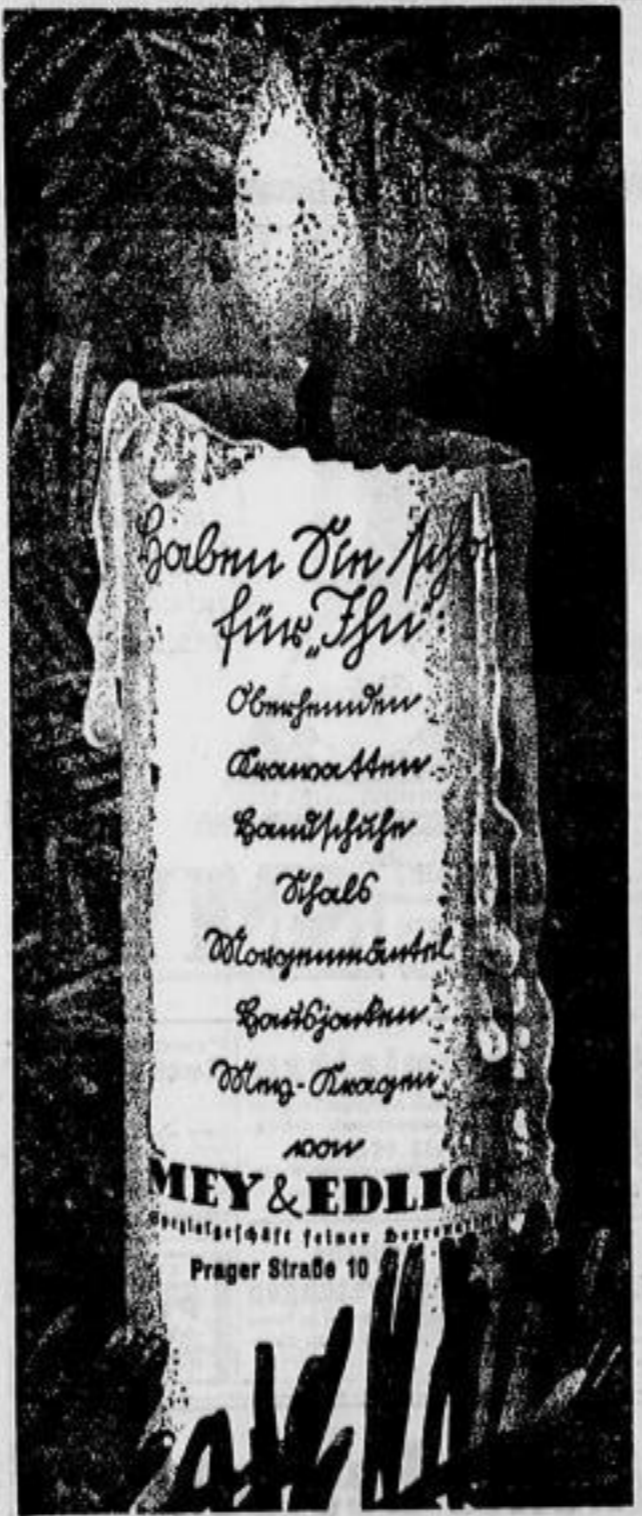 Haben Sie schon
für „Ihn“
Oberhemden
Krawatten
Handschuhe
Schals
Morgenmäntel
Hausjacken
Mey-Kragen
von
MEY & EDLICH
Spezialgeschäft feiner Herrenartikel
Prager Straße 10